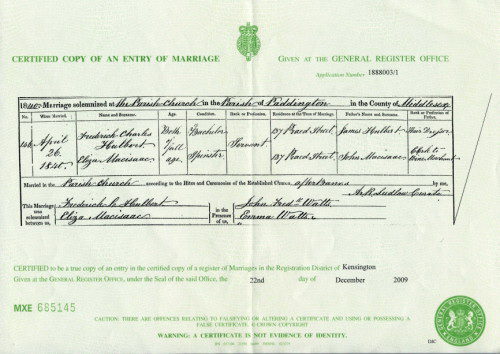 CERTIFIED COPY OF AN ENTRY OF MARRIAGE
GIVEN AT THE GENERAL REGISTER OFFICE
Application Number 1888003/1
1840. Marriage solemnized at the Parish Church in the Parish of Paddington in the County of Middlesex
No. When Married. Name and Surname. Age. Condition. Rank or Profession. Residence at the Time of Marriage. Father's Name and Surname. Rank or Profession of Father.
April 26 1840. Frederick Charles Hulbert Both Full age. Bachelor Servant James Hulbert
Eliza Macisaac Spinster John Macisaac Clerk to
Married in the Parish Church according to the Rites and Ceremonies of the Established Church, after Banns by me,
This Marriage was solemnized between us, Frederick C Hulbert
Eliza Macisaac
in the Presence of us, John Fredk Watts
Emma Watts
CERTIFIED to be a true copy of an entry in the certified copy of a register of Marriages in the Registration District of Kensington
Given at the GENERAL REGISTER OFFICE, under the Seal of the said Office, the 22nd day of December 2009
MXE 685145
CAUTION: THERE ARE OFFENCES RELATING TO FALSIFYING OR ALTERING A CERTIFICATE AND USING OR POSSESSING A
FALSE CERTIFICATE. © CROWN COPYRIGHT
WARNING: A CERTIFICATE IS NOT EVIDENCE OF IDENTITY.
GENERAL REGISTER OFFICE
ENGLAND